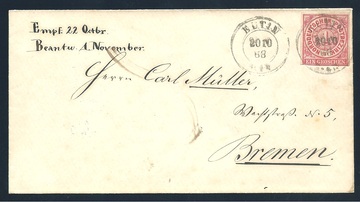 Empf. 22 Octbr.
Beantw. 1. November.
EUTIN
20 10
68
Herrn Carl Müller,
Wachtstraß. N. 5,
Bremen.